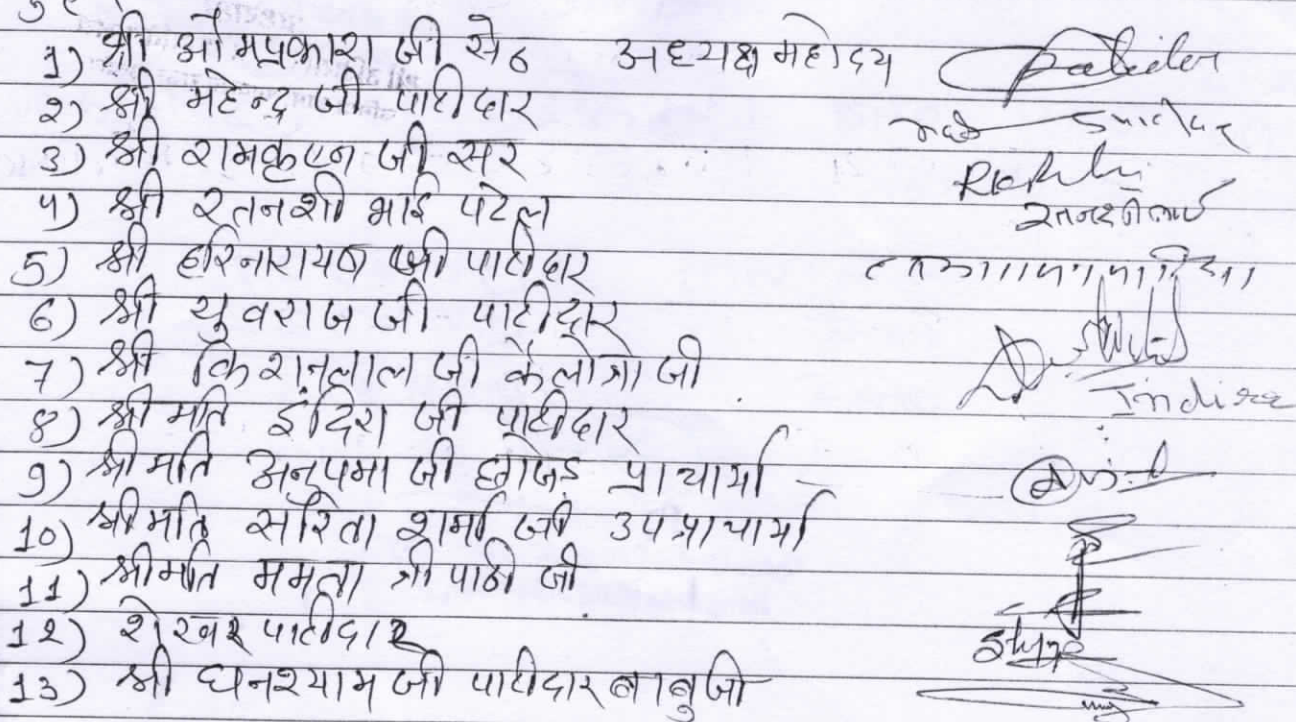 1) श्री ओमप्रकाश जी सेठ अध्यक्ष महोदय Patidar
2) श्री महेन्द्र जी पाटीदार
3) श्री रामकृष्ण जी सर
4) श्री रतनशी भाई पटेल रतनशीभाई
5) श्री हरिनारायण जी पाटीदार
6) श्री युवराज जी पाटीदार
7) श्री किशनलाल जी केलोत्रा जी
8) श्रीमति इंदिरा जी पाटीदार Indira
9) श्रीमति अनुपमा जी छाजेड़ प्राचार्या
10) श्रीमति सरिता शर्मा जी उपप्राचार्या
11) श्रीमति ममता त्रीपाठी जी
12) शेखर पाटीदार
13) श्री घनश्याम जी पाटीदार बाबुजी